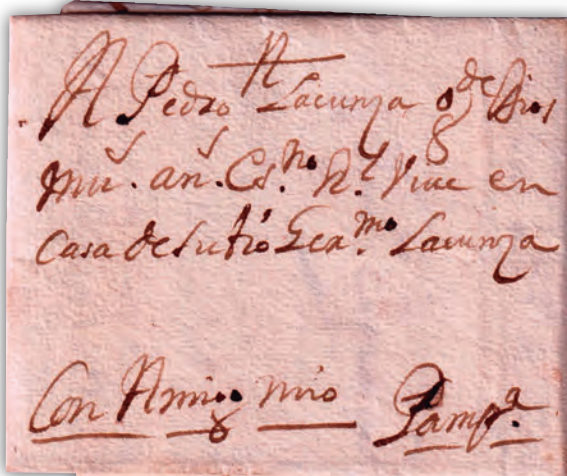 A Pedro Lacunza q.e g.de Dios
m.s an.s Es.no R.l Vive en
Casa de su tio Gea.mo Lacunza
Con Amigo mio Pamp.a